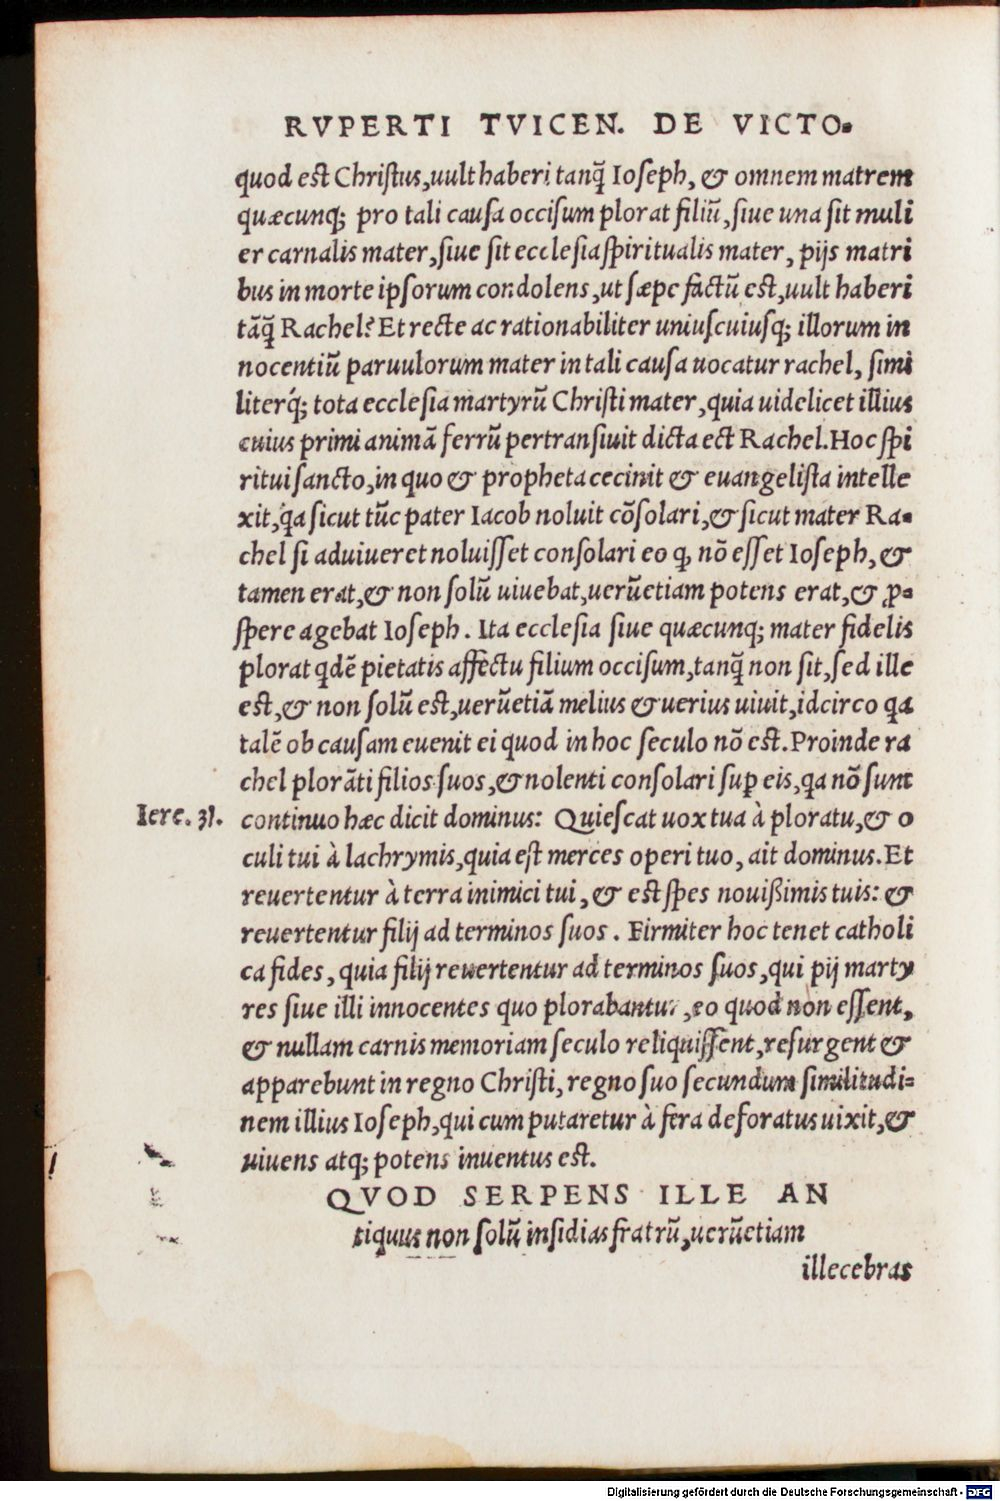 RVPERTI TVICEN. DE VICTO-
quod est Christus, uult haberi tanq̃ Ioseph, & omnem matrem
quæcunq; pro tali causa occisum plorat filiũ, siue una sit muli
er carnalis mater, siue sit ecclesia spiritualis mater, pijs matri
bus in morte ipsorum condolens, ut sæpe factũ est, uult haberi
tãq̃ Rachel? Et recte ac rationabiliter uniuscuiusq; illorum in
nocentiũ paruulorum mater in tali causa uocatur rachel, simi
literq́; tota ecclesia martyrũ Christi mater, quia uidelicet illius
cuius primi animã ferrũ pertransiuit dicta ect Rachel. Hoc spi
ritui sancto, in quo & propheta cecinit & euangelista intelle
xit, q̇a sicut tũc pater Iacob noluit cõsolari, & sicut mater Ra-
chel si aduiueret noluisset consolari eo ꝙ nõ esset Ioseph, &
tamen erat, & non solũ uiuebat, uerũetiam potens erat, & ꝓ-
spere agebat Ioseph. Ita ecclesia siue quæcunq; mater fidelis
plorat qdẽ pietatis affectu filium occisum, tanq̃ non sit, sed ille
est, & non solũ est, uerũetiã melius & uerius uiuit, idcirco qa
talẽ ob causam euenit ei quod in hoc seculo nõ est. Proinde ra
chel plorãti filios suos, & nolenti consolari suꝑ eis, qa nõ sunt
Iere. 31. continuo hæc dicit dominus: Quiescat uox tua à ploratu, & o
culi tui à lachrymis, quia est merces operi tuo, ait dominus. Et
reuertentur à terra inimici tui, & est spes nouißimis tuis: &
reuertentur filij ad terminos suos. Firmiter hoc tenet catholi
ca fides, quia filij reuertentur ad terminos suos, qui pij marty
res siue illi innocentes quo plorabantur, eo quod non essent,
& nullam carnis memoriam seculo reliquissent, resurgent &
apparebunt in regno Christi, regno suo secundum similitudi-
nem illius Ioseph, qui cum putaretur à fera deforatus uixit, &
uiuens atq; potens inuentus est.
QVOD SERPENS ILLE AN
tiquus non solũ insidias fratrũ, uerũetiam
illecebras
Digitalisierung gefördert durch die Deutsche Forschungsgemeinschaft - DFG